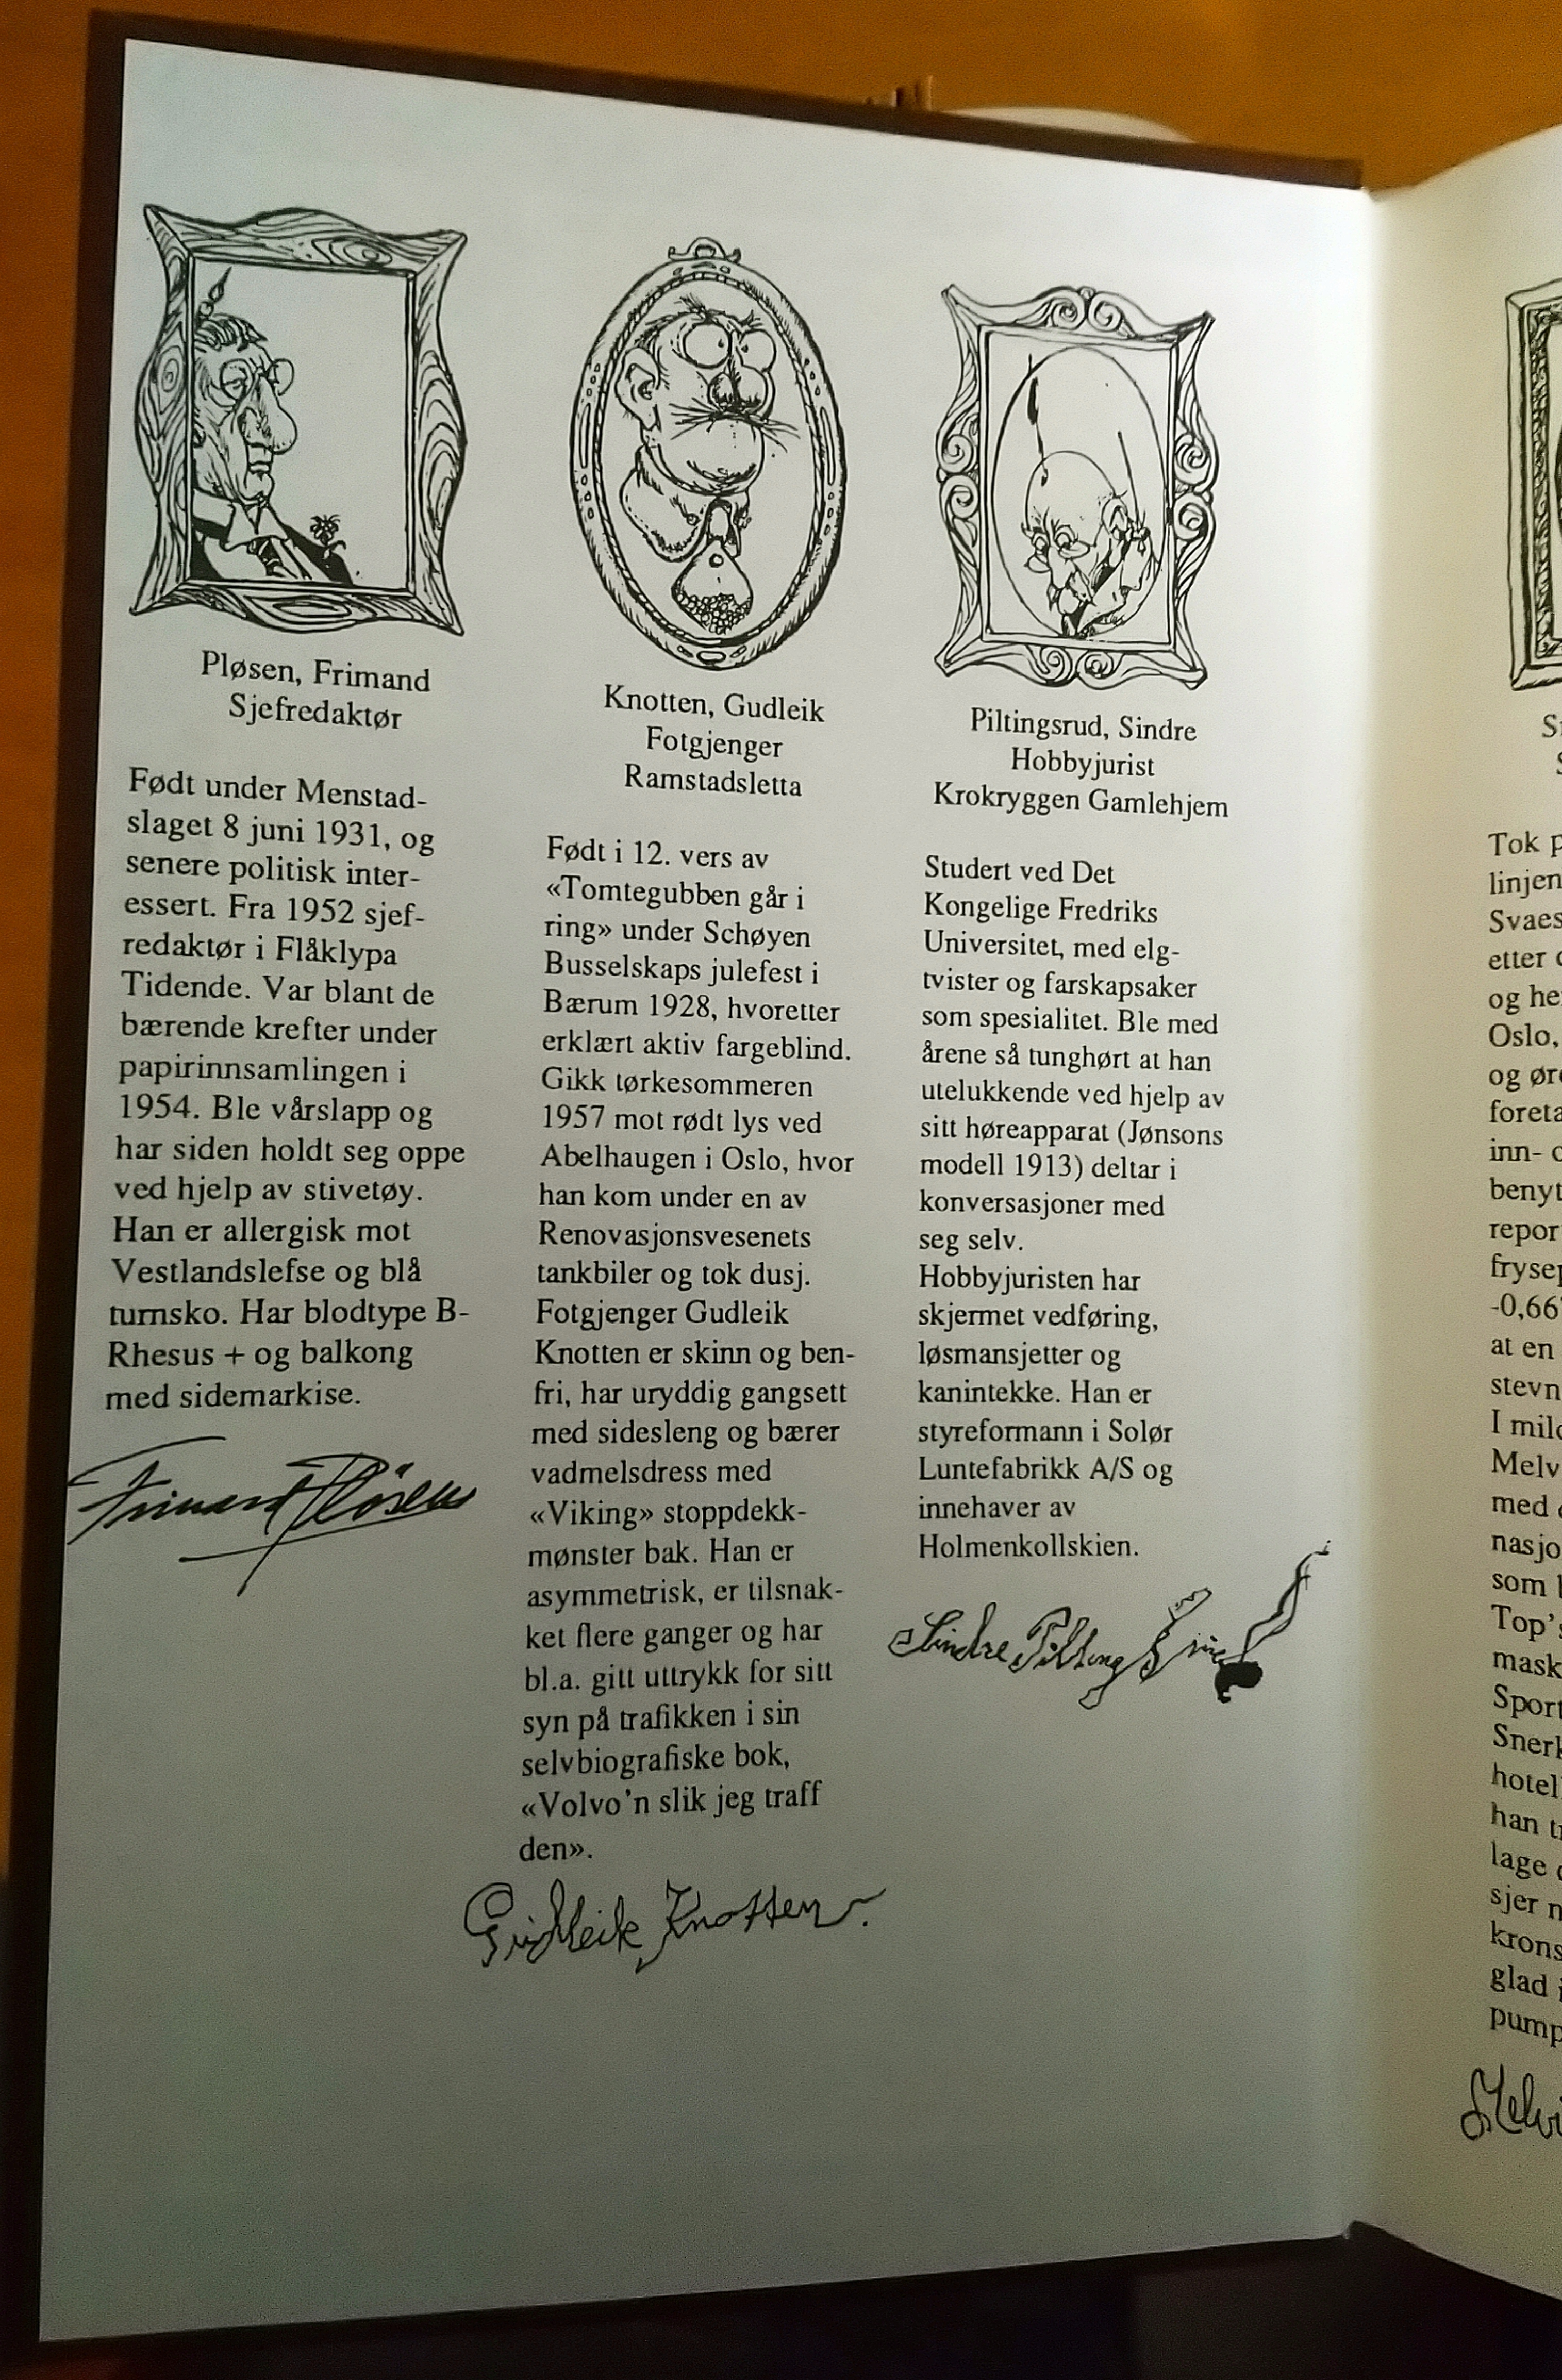 Pløsen, Frimand
Sjefredaktør
Født under Menstad-
slaget 8 juni 1931, og
senere politisk inter-
essert. Fra 1952 sjef-
redaktør i Flåklypa
Tidende. Var blant de
bærende krefter under
papirinnsamlingen i
1954. Ble vårslapp og
har siden holdt seg oppe
ved hjelp av stivetøy.
Han er allergisk mot
Vestlandslefse og blå
turnsko. Har blodtype B-
Rhesus + og balkong
med sidemarkise.
Frimand Pløsen
Knotten, Gudleik
Fotgjenger
Ramstadsletta
Født i 12. vers av
«Tomtegubben går i
ring» under Schøyen
Busselskaps julefest i
Bærum 1928, hvoretter
erklært aktiv fargeblind.
Gikk tørkesommeren
1957 mot rødt lys ved
Abelhaugen i Oslo, hvor
han kom under en av
Renovasjonsvesenets
tankbiler og tok dusj.
Fotgjenger Gudleik
Knotten er skinn og ben-
fri, har uryddig gangsett
med sidesleng og bærer
vadmelsdress med
«Viking» stoppdekk-
mønster bak. Han er
asymmetrisk, er tilsnak-
ket flere ganger og har
bl.a. gitt uttrykk for sitt
syn på trafikken i sin
selvbiografiske bok,
«Volvo'n slik jeg traff
den».
Gudleik Knotten
Piltingsrud, Sindre
Hobbyjurist
Krokryggen Gamlehjem
Studert ved Det
Kongelige Fredriks
Universitet, med elg-
tvister og farskapsaker
som spesialitet. Ble med
årene så tunghørt at han
utelukkende ved hjelp av
sitt høreapparat (Jønsons
modell 1913) deltar i
konversasjoner med
seg selv.
Hobbyjuristen har
skjermet vedføring,
løsmansjetter og
kanintekke. Han er
styreformann i Solør
Luntefabrikk A/S og
innehaver av
Holmenkollskien.
Sindre
Tok
linjen
Svaes
etter
og he
Oslo,
og øre
foreta
inn-
benyt
repor
fryse
-0,66
at en
stevn
I mil
Melv
med
nasjo
som
Top's
mask
Sport
Snerk
hotel
han
lage
sjer
krons
glad
pump
Melvi